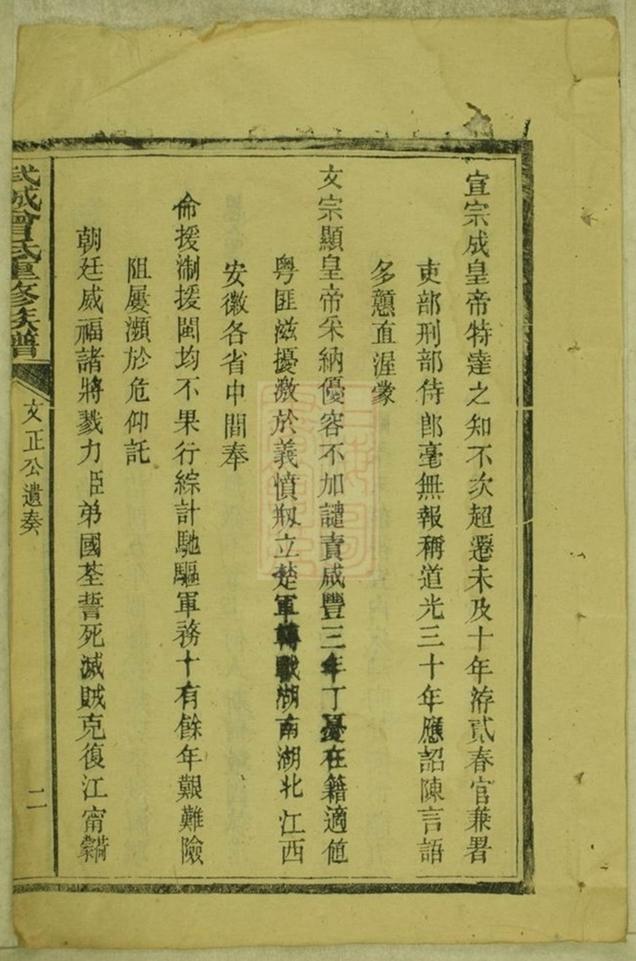 宣宗成皇帝特達之知不次超遷未及十年洊貳春官兼署
吏部刑部侍郎毫無報稱道光三十年應詔陳言語
多戇直渥蒙
文宗顯皇帝采納優容不加譴責咸豐三年丁憂在籍適値
粵匪滋擾激於義憤剏立楚軍轉戰湖南湖北江西
安徽各省中間奉
命援浙援閩均不果行綜計馳驅軍務十有餘年艱難險
阻屢瀕於危仰託
朝廷威福諸將戮力臣弟國荃誓死滅賊克復江甯錫
武城曾氏重修族譜
文正公遺奏
二